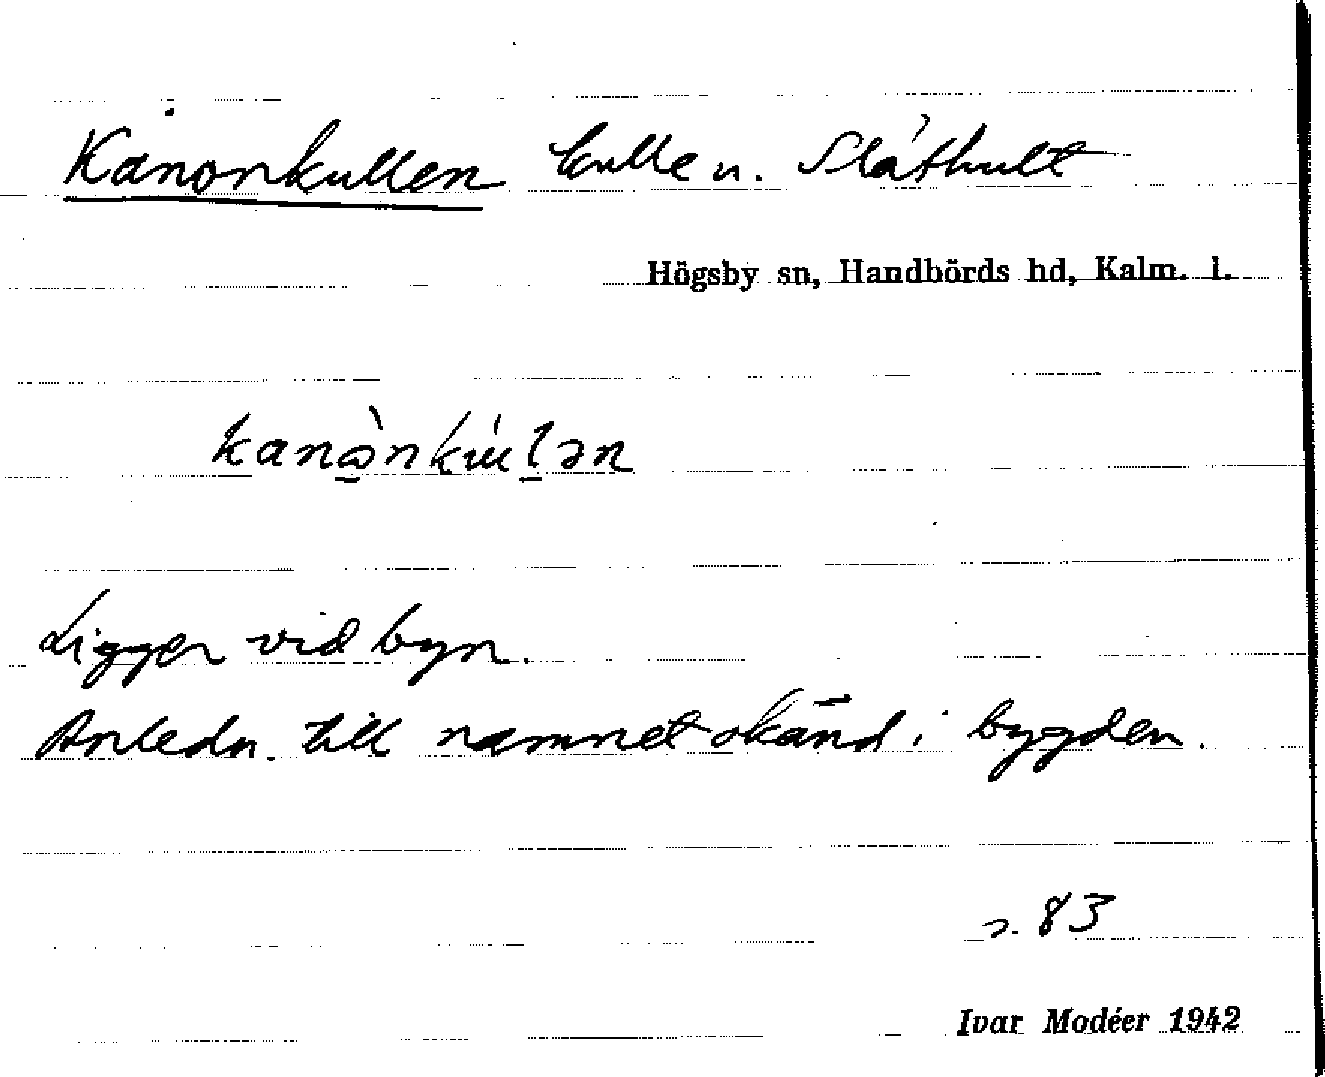 Kanonkullen kulle u. Slåthult
Högsby sn, Handbörds hd, Kalm. l.
kanònkúlən
Ligger vid byn.
Anledn. till namnet okänd i bygden.
s. 83
Ivar Modéer 1942